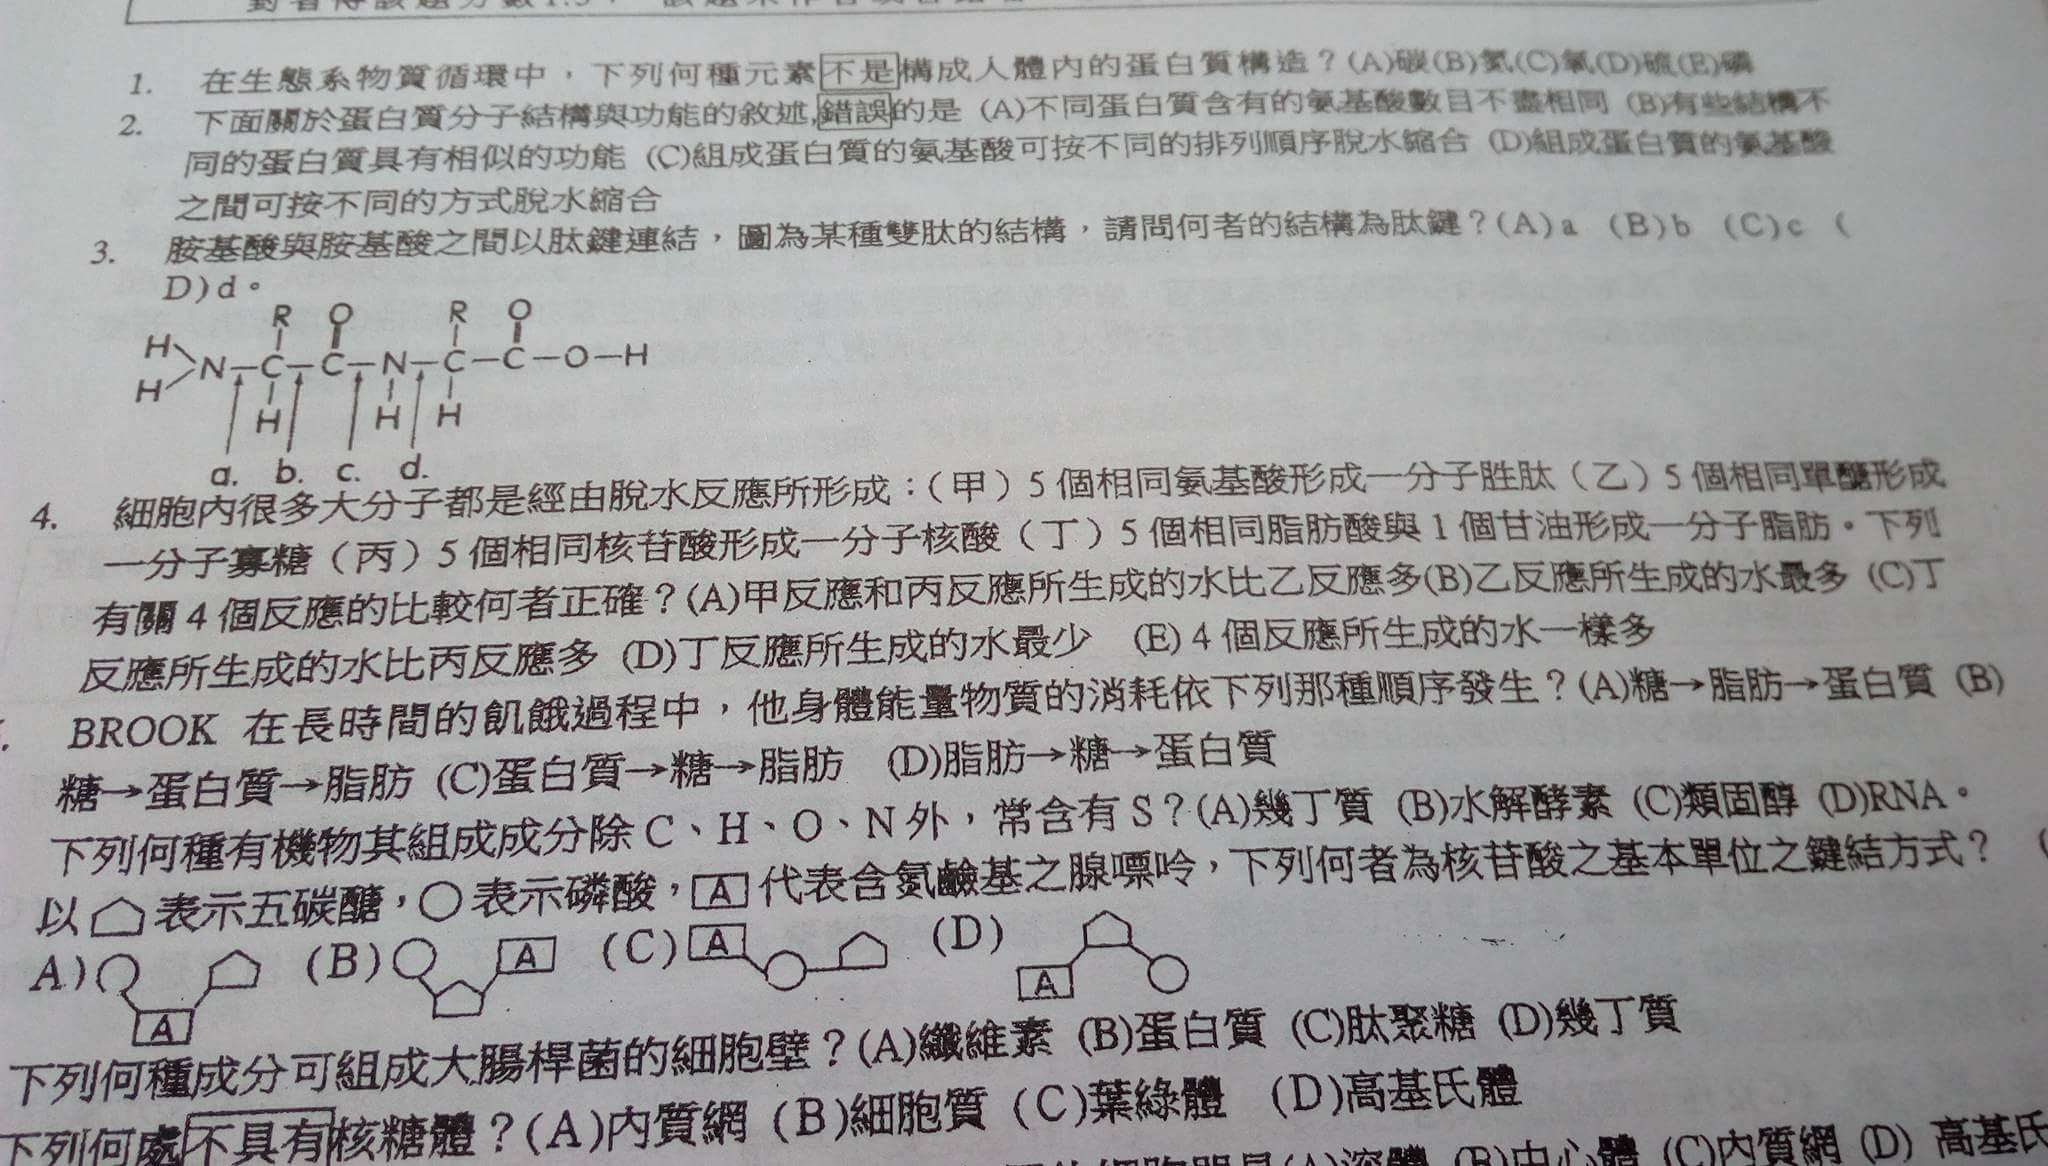 1. 在生態系物質循環中，下列何種元素不是構成人體內的蛋白質構造？(A)碳(B)氮(C)氧(D)硫(E)磷
2. 下面關於蛋白質分子結構與功能的敘述,錯誤的是 (A)不同蛋白質含有的氨基酸數目不盡相同 (B)有些結構不
同的蛋白質具有相似的功能 (C)組成蛋白質的氨基酸可按不同的排列順序脫水縮合 (D)組成蛋白質的氨基酸
之間可按不同的方式脫水縮合
3. 胺基酸與胺基酸之間以肽鍵連結，圖為某種雙肽的結構，請問何者的結構為肽鍵？(A)a (B)b (C)c (
D)d。
R O R O
H
N—C—C—N—C—C—O—H
H
H H H
a. b. c. d.
4. 細胞內很多大分子都是經由脫水反應所形成：（甲）5 個相同氨基酸形成一分子胜肽（乙）5 個相同單醣形成
一分子寡糖（丙）5 個相同核苷酸形成一分子核酸（丁）5 個相同脂肪酸與 1 個甘油形成一分子脂肪。下列
有關 4 個反應的比較何者正確？(A)甲反應和丙反應所生成的水比乙反應多(B)乙反應所生成的水最多 (C)丁
反應所生成的水比丙反應多 (D)丁反應所生成的水最少 (E) 4 個反應所生成的水一樣多
BROOK 在長時間的飢餓過程中，他身體能量物質的消耗依下列那種順序發生？(A)糖→脂肪→蛋白質 (B)
糖→蛋白質→脂肪 (C)蛋白質→糖→脂肪 (D)脂肪→糖→蛋白質
下列何種有機物其組成成分除 C、H、O、N 外，常含有 S？(A)幾丁質 (B)水解酵素 (C)類固醇 (D)RNA。
以 表示五碳醣，○ 表示磷酸，A 代表含氮鹼基之腺嘌呤，下列何者為核苷酸之基本單位之鍵結方式？ (
A) A (B) A (C) A (D) A
下列何種成分可組成大腸桿菌的細胞壁？(A)纖維素 (B)蛋白質 (C)肽聚糖 (D)幾丁質
下列何處不具有核糖體？(A)內質網 (B)細胞質 (C)葉綠體 (D)高基氏體
(A)溶體 (B)中心體 (C)內質網 (D) 高基氏